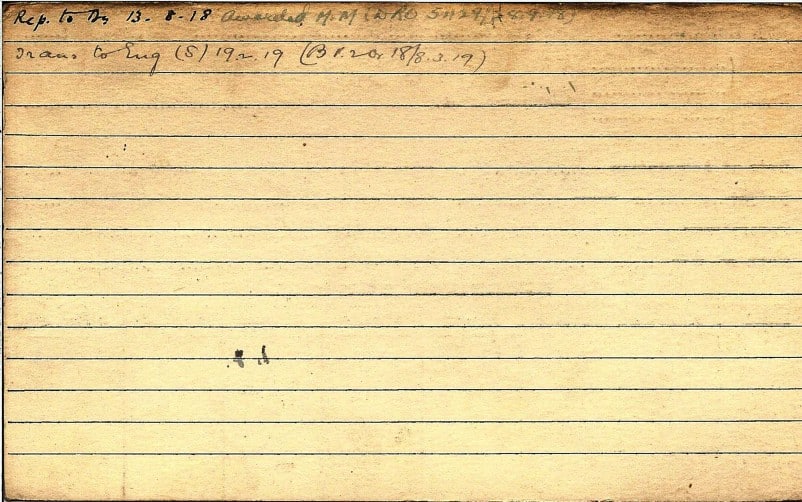 Rep. to Dy 13-8-18 Awarded M.M (DRO
Trans to Eng (S) 19.2.19 (B 18/8.3.19)